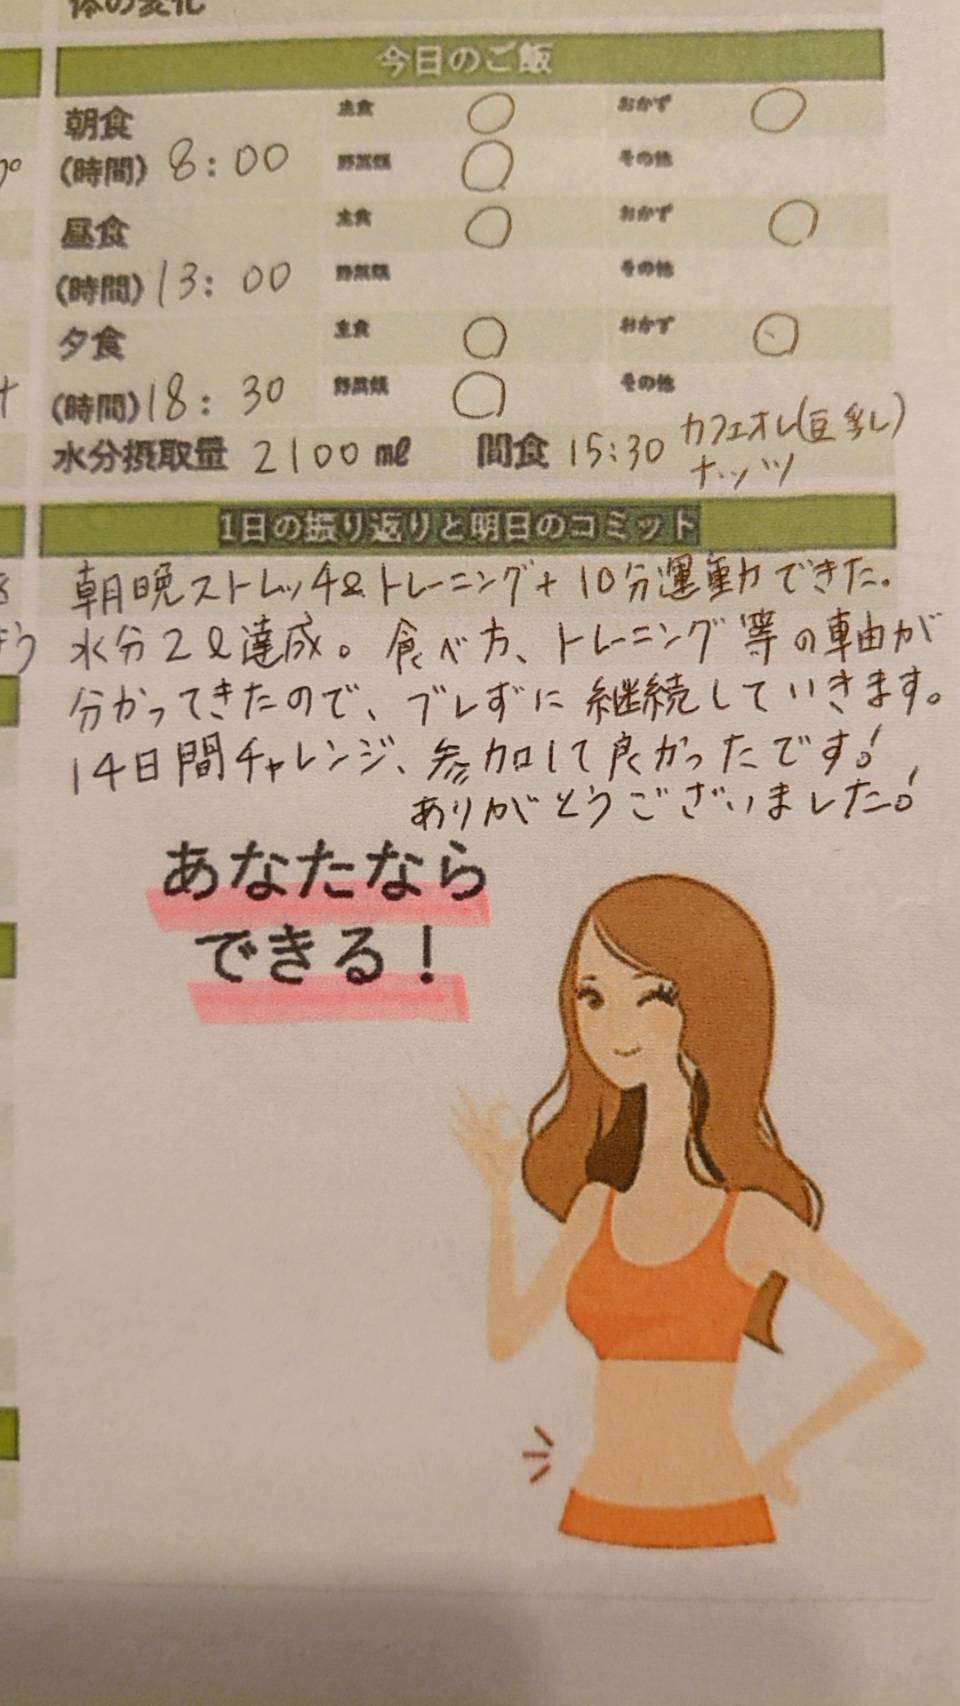 体の変化
今日のご飯
朝食 主食 ○ おかず ○
(時間) 8:00 野菜類 ○ その他
昼食 主食 ○ おかず ○
(時間) 13:00 野菜類 その他
夕食 主食 ○ おかず ○
(時間) 18:30 野菜類 ○ その他
水分摂取量 2100 ml 間食 15:30 カフェオレ(豆乳)
ナッツ
1日の振り返りと明日のコミット
朝晩ストレッチ&トレーニング+10分運動できた。
水分2ℓ達成。食べ方、トレーニング等の軸が
分かってきたので、ブレずに継続していきます。
14日間チャレンジ、参加して良かったです!
ありがとうございました!
あなたなら
できる!